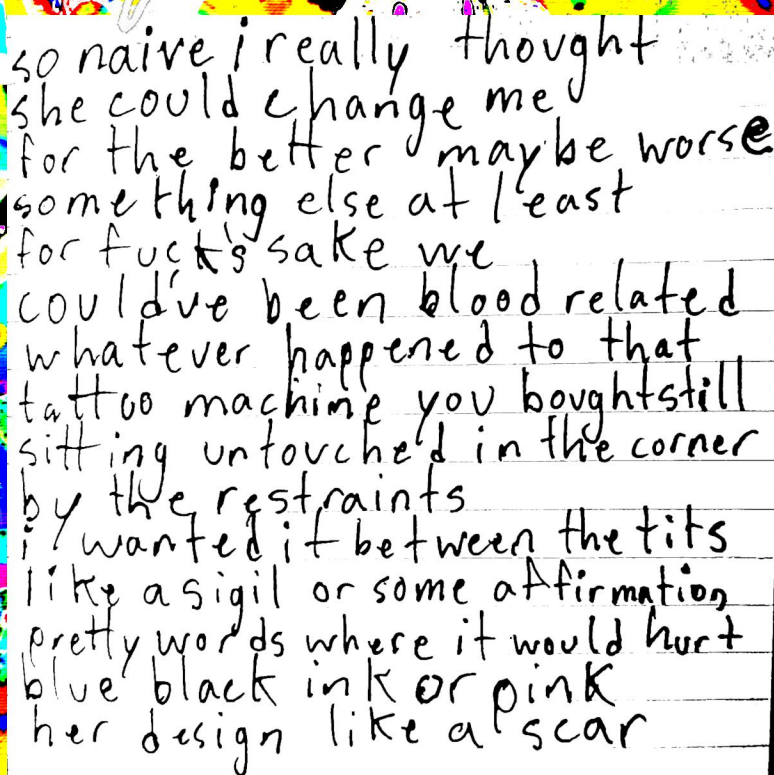 so naive i really thought
she could change me
for the better maybe worse
something else at least
for fuck's sake we
could've been blood related
whatever happened to that
tattoo machine you bought still
sitting untouched in the corner
by the restraints
i wanted it between the tits
like a sigil or some affirmation
pretty words where it would hurt
blue black ink or pink
her design like a scar